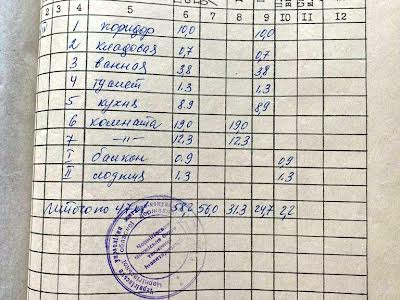 2 3 4 5 6 7 8 9 10 11 12
1 коридор 10,0 10,0
2 кладовая 0,7 0,7
3 ванная 3,8 3,8
4 туалет 1.3 1.3
5 кухня 8.9 8,9
6 комната 19.0 19.0
7 -//- 12.3 12.3
I балкон 0.9 0,9
II лоджия 1.3 1.3
Итого по 47 58,2 56,0 31.3 24,7 2,2